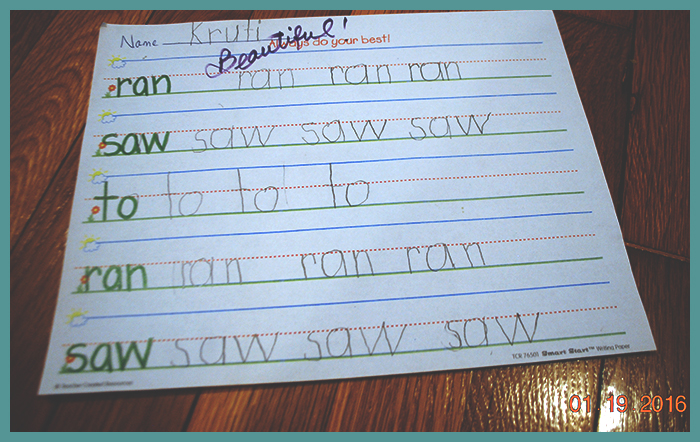 Name Kruti
Always do your best!
Beautiful!
ran ran ran ran
saw saw saw saw
to to to to
ran ran ran ran
saw saw saw saw
TCR 76501 Smart Start™ Writing Paper
© Teacher Created Resources
01 19 2016